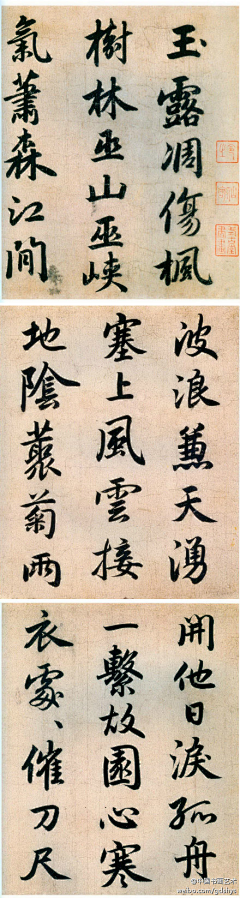 玉露凋傷楓
樹林巫山巫峽
氣蕭森江間
波浪兼天湧
塞上風雲接
地陰藂菊兩
開他日淚孤舟
一繫故園心寒
衣處〻催刀尺
@中国书画艺术
weibo.com/gdshys